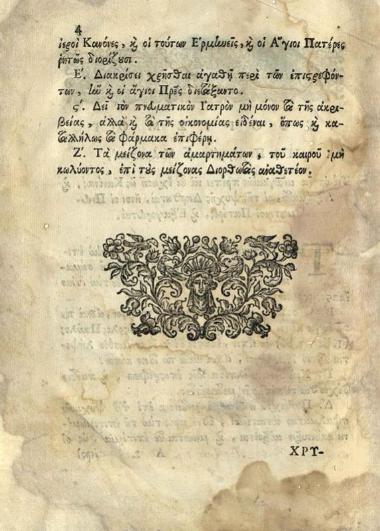 4
ἱεροὶ Κανόνες, ϗ οἱ τούτων Ἑρμηνεῖς, ϗ οἱ Ἅγιοι Πατέρες
ῥητῶς διορίζουσι.
Ε΄. Διακρίσει χρῆσθαι ἀγαθῇ περὶ τῶν ἐπιστρεφόν-
των, ϗ οἱ ἅγιοι Πρες διετάξαντο.
ϛ΄. Δεῖ τὸν πνματικὸν Ἰατρὸν μὴ μόνον τὰ τῆς ἀκρι-
βείας, ἀλλὰ ϗ τὰ τῆς οἰκονομίας εἰδέναι, ὅπως ϗ κα-
ταλλήλως τὰ φάρμακα ἐπιφέρῃ.
Ζ΄. Τὰ μείζονα τῶν ἁμαρτημάτων, τοῦ καιροῦ μὴ
κωλύοντος, ἐπὶ τοὺς μείζονας Διορθωτὰς ἀναθετέον.
ΧΡΥ-